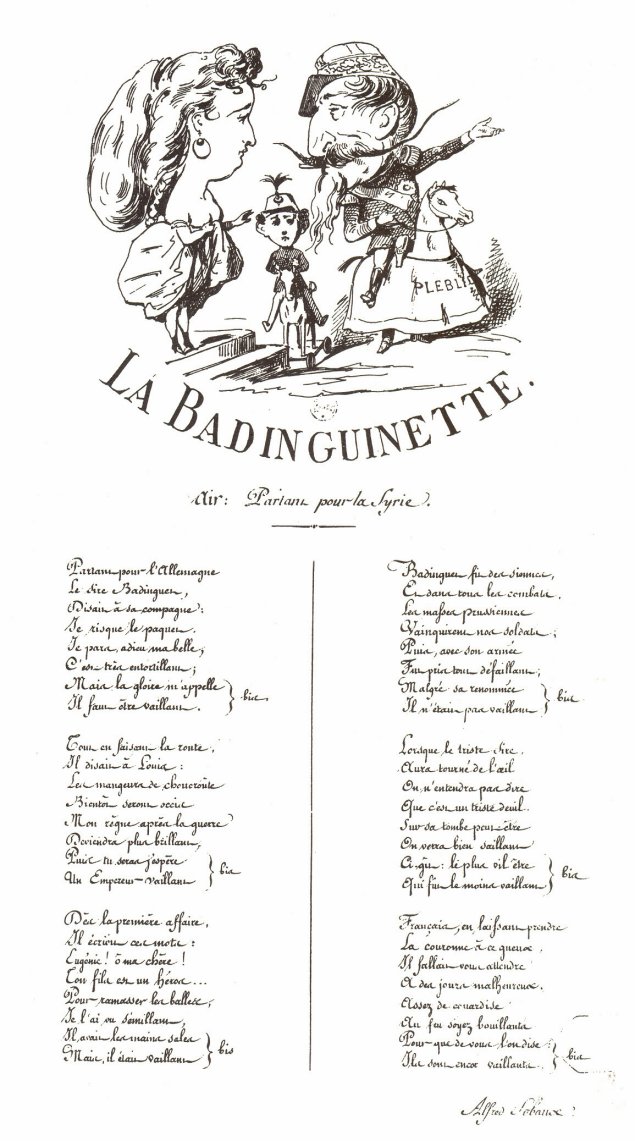 PLEBI
LA BADINGUINETTE.
Air: Partant pour la Syrie.
Partant pour l'Allemagne
Le sire Badinguet,
Disait à sa compagne:
Je risque le paquet.
Je pars, adieu ma belle;
C'est très entortillant;
Mais la gloire m'appelle
Il faut être vaillant. } bis.
Tout en faisant la route,
Il disait à Louis:
Les mangeurs de choucroûte
Bientôt seront occis
Mon règne après la guerre
Deviendra plus brillant,
Puis tu seras j'espère
Un Empereur vaillant } bis
Dès la première affaire,
Il écrivit ces mots:
Eugénie! ô ma chère!
Ton fils est un héros...
Pour ramasser les balles,
Je l'ai vu sémillant,
Il avait les mains sales
Mais, il était vaillant } bis
Badinguet fit des siennes,
Et dans tous les combats,
Les masses prussiennes
Vainquirent nos soldats;
Puis, avec son armée
Fut pris tout défaillant;
Malgré sa renommée
Il n'était pas vaillant } bis
Lorsque le triste sire,
Aura tourné de l'œil
On n'entendra pas dire
Que c'est un triste deuil..
Sur sa tombe peut-être
On verra bien saillant
Ci-gît: le plus vil être
Qui fut le moins vaillant } bis
Français, en laissant prendre
La couronne à ce gueux,
Il fallait vous attendre
A des jours malheureux.
Assez de couardise
Au feu soyez bouillants
Pour que de vous l'on dise:
Ils sont encor vaillants.. } bis
Alfred